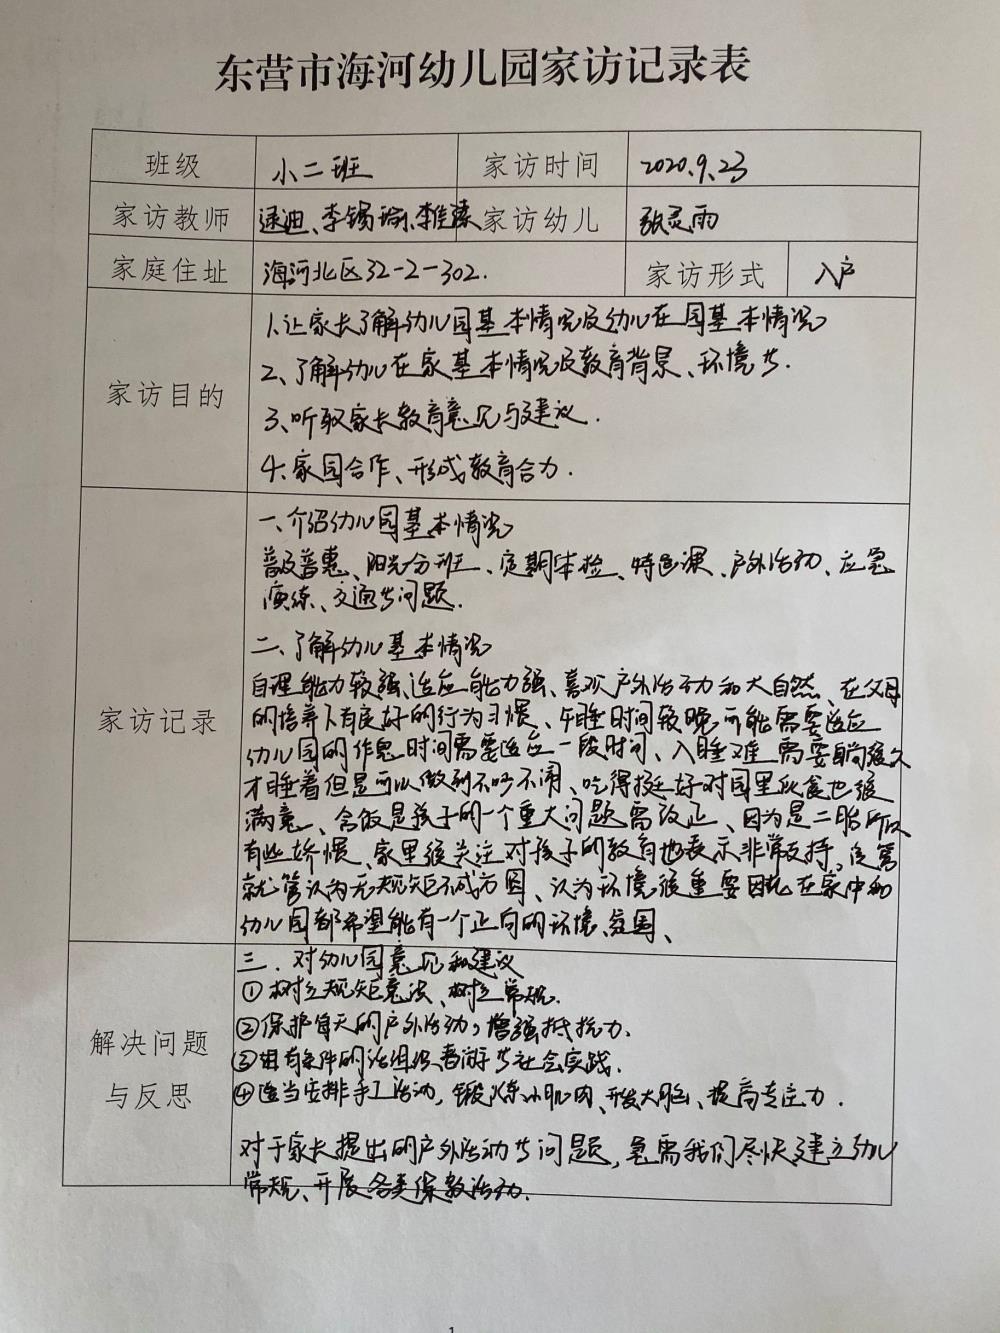 东营市海河幼儿园家访记录表
班级 小二班 家访时间 2020.9.23
家访教师 逯迪、李锡瑜、李佳臻 家访幼儿 张灵雨
家庭住址 海河北区32-2-302. 家访形式 入户
家访目的
1.让家长了解幼儿园基本情况及幼儿在园基本情况
2、了解幼儿在家基本情况及教育背景、环境等.
3、听取家长教育意见与建议.
4、家园合作、形成教育合力.
家访记录
一、介绍幼儿园基本情况
普及普惠、阳光分班、定期体检、特色课、户外活动、应急
演练、交通等问题.
二、了解幼儿基本情况
自理能力较强、适应能力强、喜欢户外活动和大自然、在父母
的培养下有良好的行为习惯、午睡时间较晚可能需要适应
幼儿园的作息时间需要适应一段时间、入睡难需要躺很久
才睡着但是可以做到不吵不闹、吃得挺好对园里伙食也很
满意、含饭是孩子的一个重大问题需改正、因为是二胎所以
有些娇惯、家里很关注对孩子的教育也表示非常支持,该管
就管认为无规矩不成方圆、认为环境很重要因此在家中和
幼儿园都希望能有一个正向的环境、氛围、
解决问题
与反思
三.对幼儿园意见和建议
①树立规矩意识、树立常规.
②保护每天的户外活动,增强抵抗力.
③有条件的话组织春游等社会实践.
④适当安排手工活动,锻炼小肌肉、开发大脑、提高专注力.
对于家长提出的户外活动等问题,急需我们尽快建立幼儿
常规、开展各类保教活动.
1